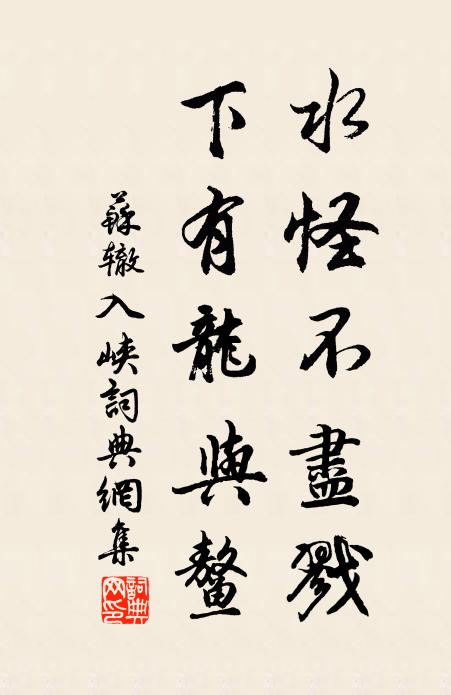 水怪不盡戮
下有龍與鰲
蘇辙入峽詞典網集
詞典網印